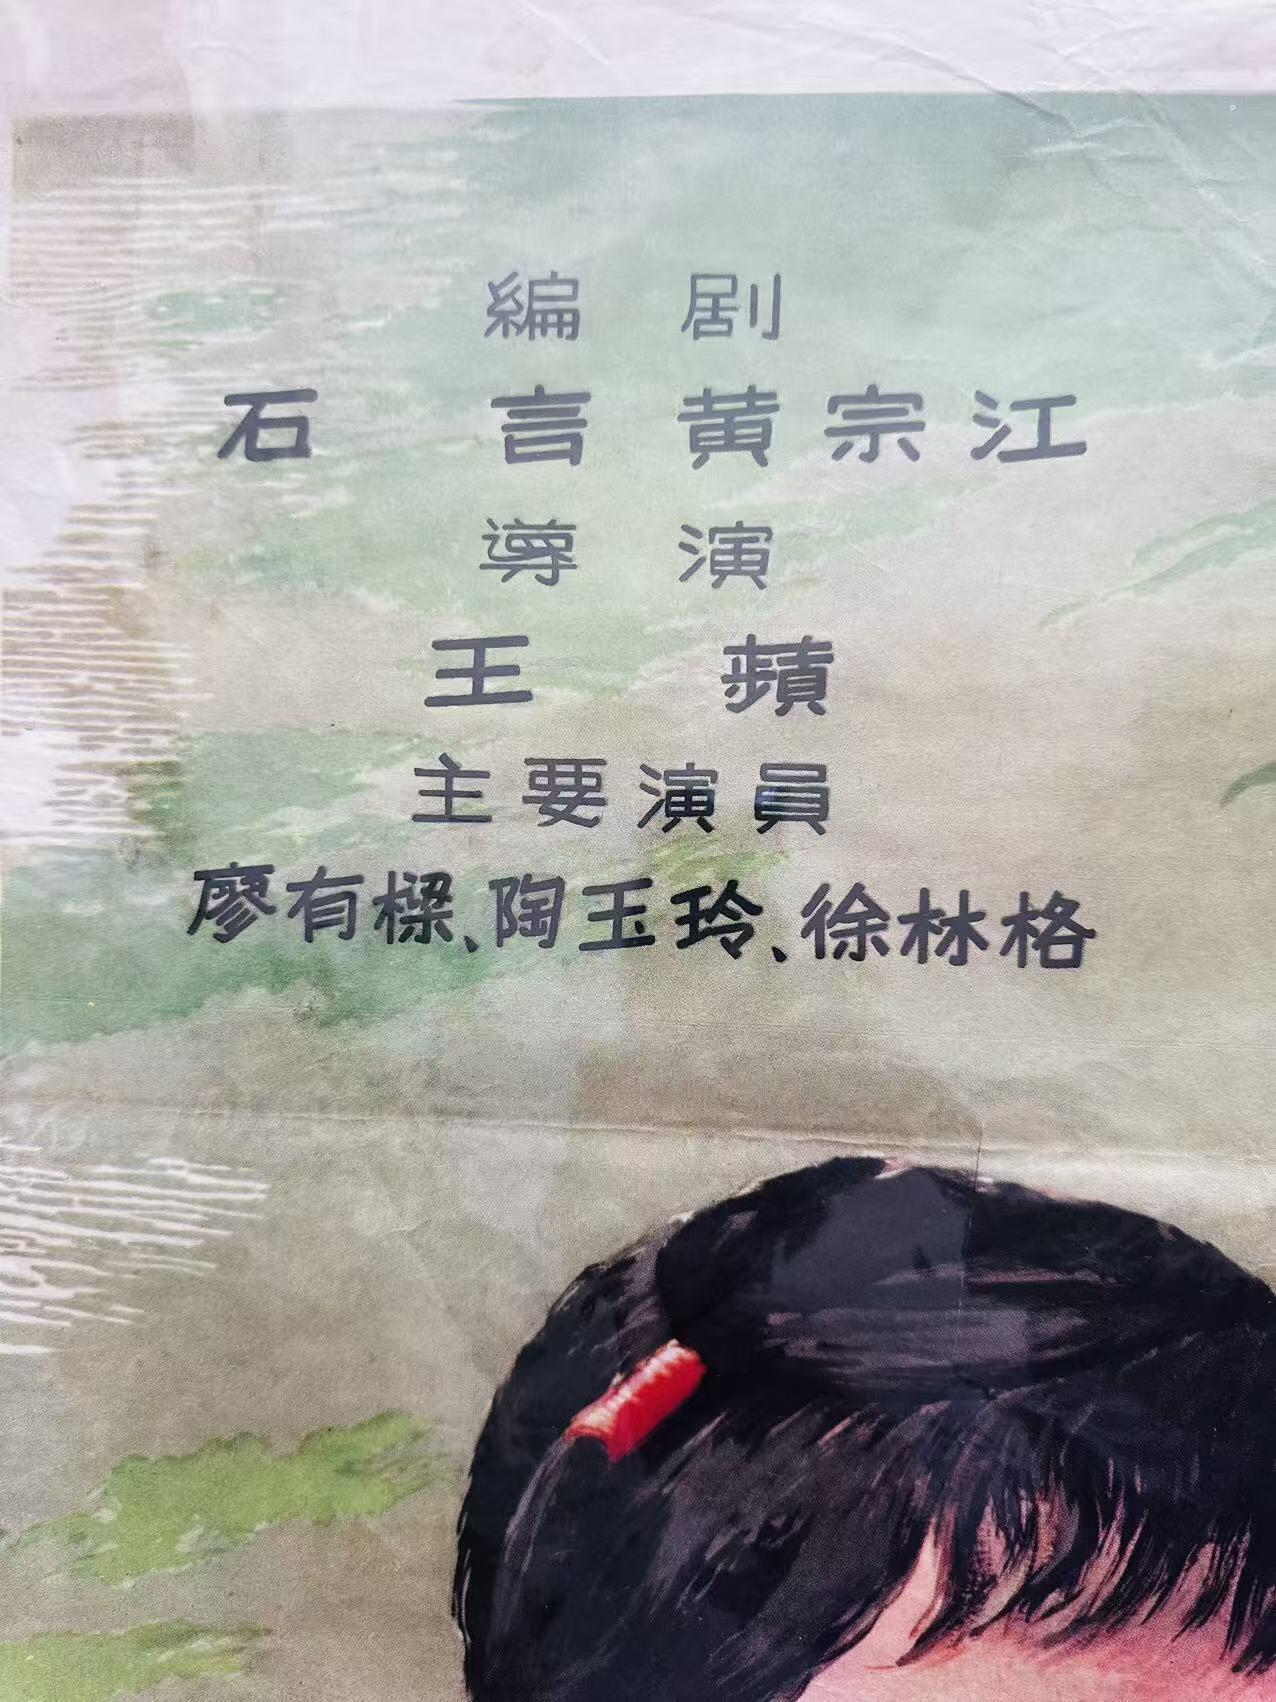 編剧
石言 黄宗江
導演
王蘋
主要演員
廖有樑、陶玉玲、徐林格